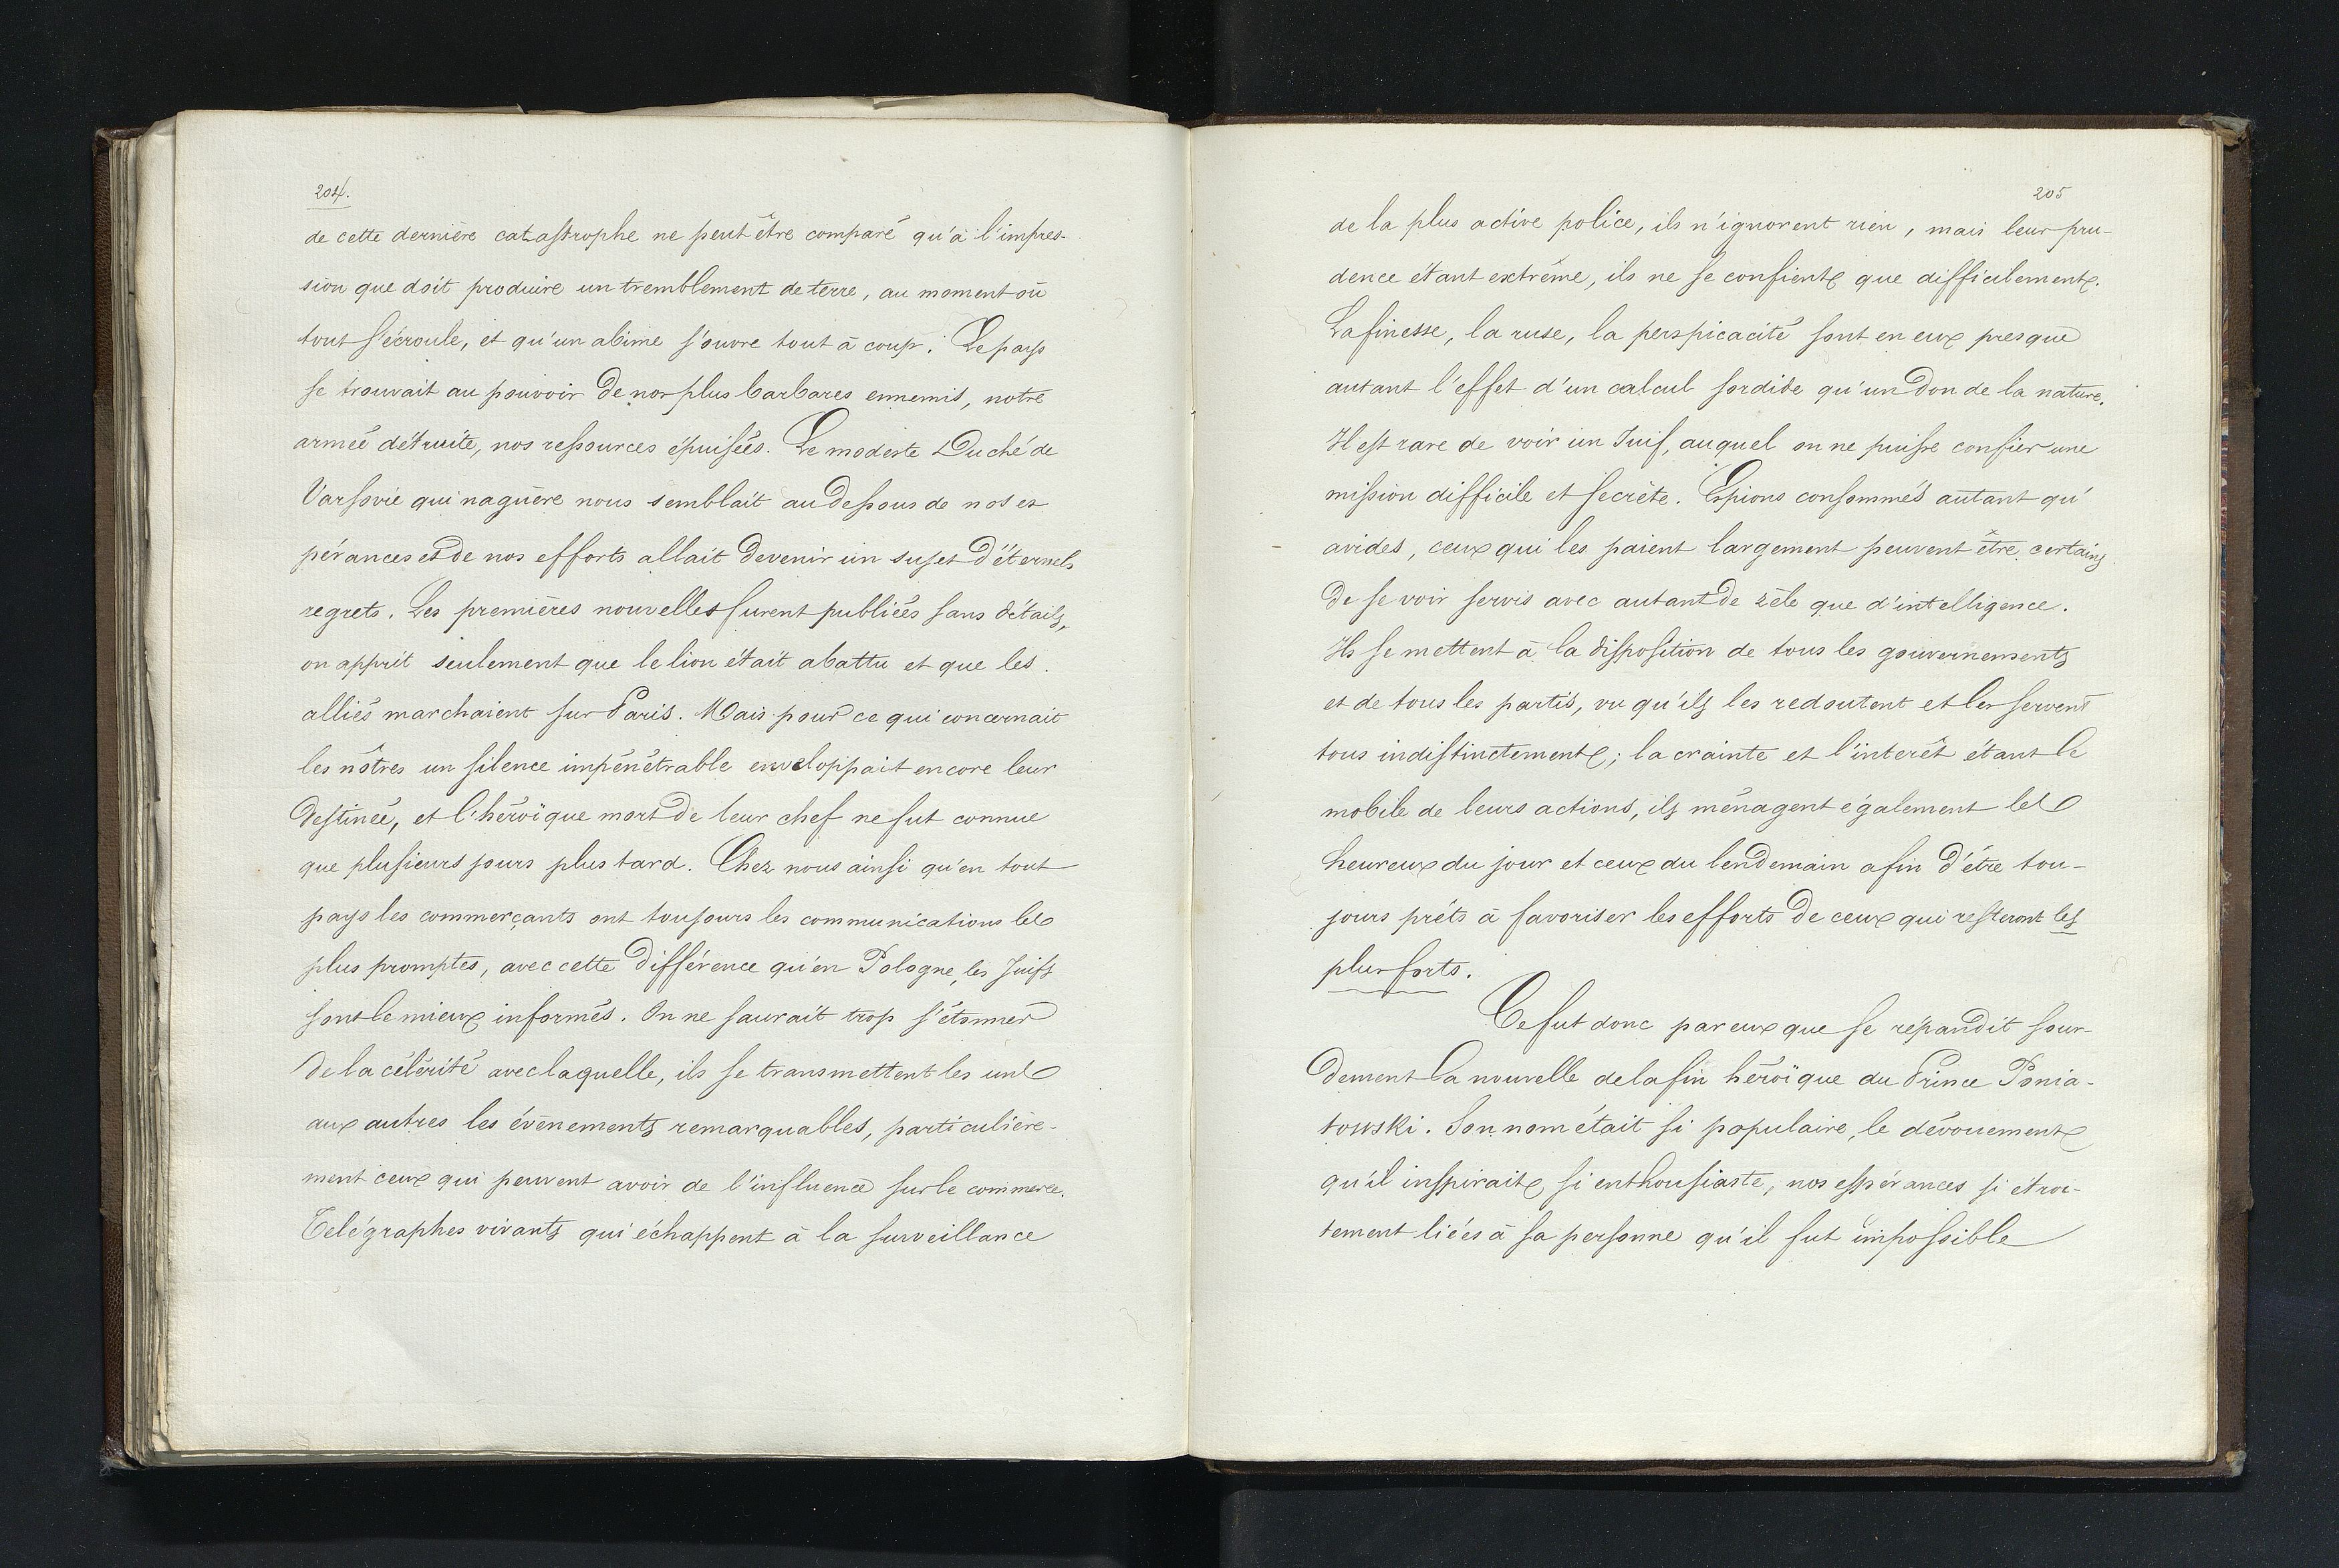 204.
de cette dernière catastrophe ne peut être comparé qu'à l'impres-
sion que doit produire un tremblement de terre, au moment où
tout s'écroule, et qu'un abîme s'ouvre tout à coup. Le pays
se trouvait au pouvoir de nos plus barbares ennemis, notre
armée détruite, nos ressources épuisées. Le modeste Duché de
Varsovie qui naguère nous semblait au dessous de nos es
pérances et de nos efforts allait devenir un sujet d'éternels
regrets. Les premières nouvelles furent publiées sans détails,
on apprit seulement que le lion était abattu et que les
alliés marchaient sur Paris. Mais pour ce qui concernait
les nôtres un silence impénétrable enveloppait encore leur
destinée, et l'héroïque mort de leur chef ne fut connue
que plusieurs jours plus tard. Chez nous ainsi qu'en tout
pays les commerçants ont toujours les communications les
plus promptes, avec cette différence qu'en Pologne, les Juifs
sont le mieux informés. On ne saurait trop s'étonner
de la célérité avec laquelle, ils se transmettent les uns
aux autres les évènements remarquables, particulière-
ment ceux qui peuvent avoir de l'influence sur le commerce.
Télégraphes vivants qui échappent à la surveillance
205
de la plus active police, ils n'ignorent rien, mais leur pru-
dence étant extrême, ils ne se confient que difficilement.
La finesse, la ruse, la perspicacité sont en eux presque
autant l'effet d'un calcul sordide qu'un don de la nature.
Il est rare de voir un Juif, auquel on ne puisse confier une
mission difficile et secrète. Espions consommés autant qu'
avides, ceux qui les paient largement peuvent être certains
de se voir servis avec autant de zèle que d'intelligence.
Ils se mettent à la disposition de tous les gouvernements
et de tous les partis, vu qu'ils les redoutent et les servent
tous indistinctement; la crainte et l'interêt étant le
mobile de leurs actions, ils ménagent également les
heureux du jour et ceux du lendemain afin d'être tou-
jours prêts à favoriser les efforts de ceux qui resteront les
plus forts.
Ce fut donc par eux que se répandit sour-
dement la nouvelle de la fin héroïque du Prince Ponia-
towski. Son nom était si populaire, le dévouement
qu'il inspirait si enthousiaste, nos espérances si étroi-
tement liées à sa personne qu'il fut impossible